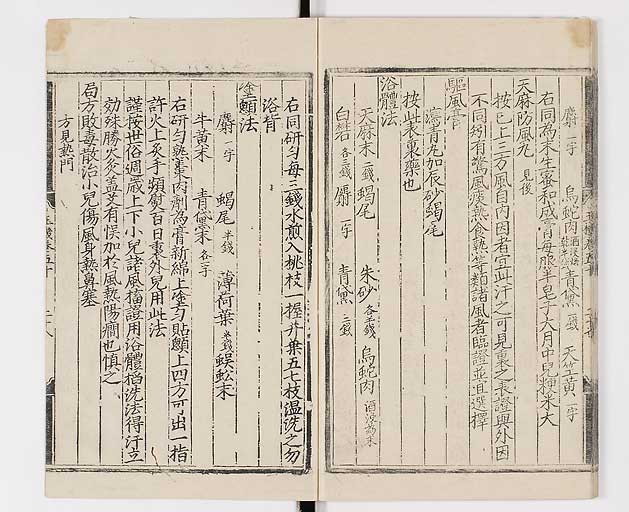 麝一字 烏蛇肉酒浸焙 青黛 天竺黃一字
右同爲末生蜜和成膏每服半皂子大月中兒粳米大
天麻防風丸見後
按已上三方風自內因者宜此汗之可見裏之表證與外因
不同纫有驚風痰熱食熱等類諸風者臨證並宜選擇
驅風膏
瀉青丸加辰砂蝎尾
按此表裏藥也
浴體法
天麻末二錢 蝎尾 朱砂各五錢 烏蛇肉酒浸爲末
白礬各三錢 麝一字 青黛三錢
右同研勻每三錢水煎入桃枝一握幷葉五七枝溫洗之勿
浴背
塗顖法
麝一字 蝎尾半錢 薄荷葉半錢 蜈蚣末
牛黃末 青黛末各一字
右研勻熟棗肉劑爲膏新綿上塗勻貼顖上四方可出一指
許火上炙手頻熨百日裏外兒用此法
謹按世俗週歲上下小兒諸風搐證用浴體搐洗法得汗立
效殊勝灸㷊蓋艾有悞加於風熱陽癎也愼之
局方敗毒散治小兒傷風身熱鼻塞
方見熱門